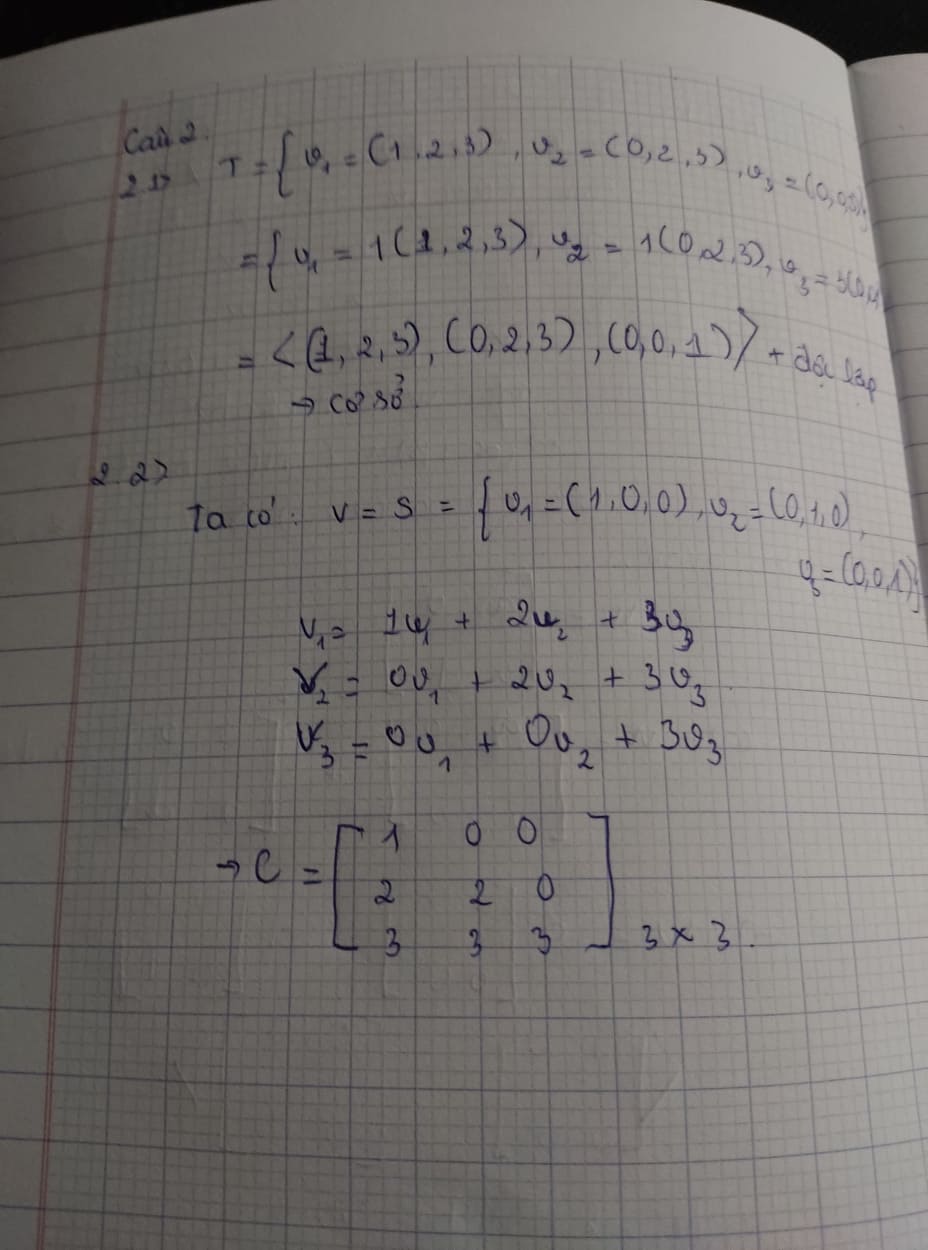 Câu 2.
2.1> T = { v₁ = (1, 2, 3), v₂ = (0, 2, 3), v₃ = (0,0,3)}
= { v₁ = 1(1, 2, 3), v₂ = 1(0,2,3), v₃ = 3(0,0,
= <(1, 2, 3), (0, 2, 3), (0, 0, 1)> + độc lập
→ cơ sở.
2.2>
Ta có: V = S = { v₁ = (1, 0, 0), v₂ = (0, 1, 0),
v₃ = (0,0,1)}
V₁ = 1v₁ + 2v₂ + 3v₃
V₂ = 0v₁ + 2v₂ + 3v₃.
V₃ = 0v₁ + 0v₂ + 3v₃
→ C = [ 1 0 0
2 2 0
3 3 3 ] 3 × 3.